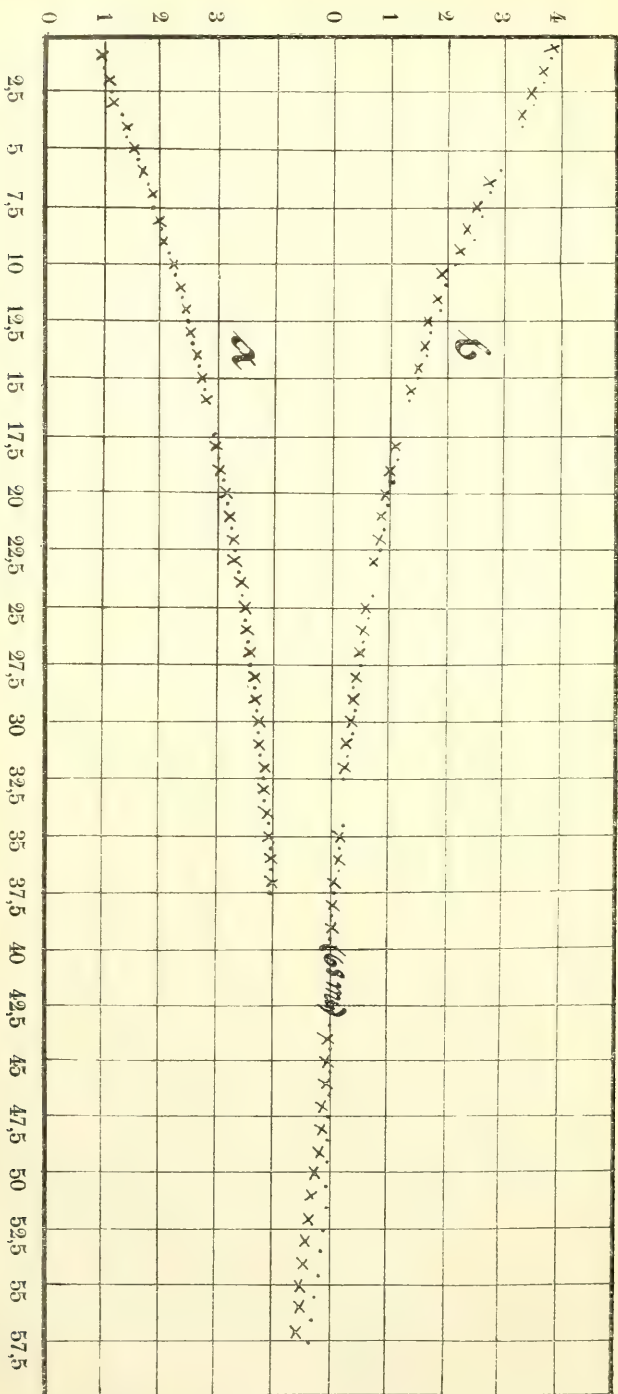 4
3
2
1
0
3
2
1
0
b
(68 min)
a
2,5 5 7,5 10 12,5 15 17,5 20 22,5 25 27,5 30 32,5 35 37,5 40 42,5 45 47,5 50 52,5 55 57,5